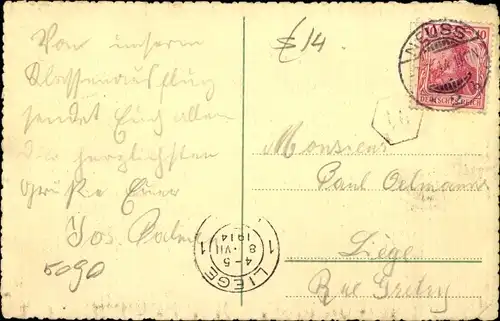 Von unserm
Klassenausflug
sendet Euch allen
die herzlichsten
Grüße Euer
Jos.
5090
£14.
NEUSS
10
DEUTSCHES REICH
Monsieur
Paul
Liège
Rue Gretry
LIEGE 1
4-5
8 VII
1914
1